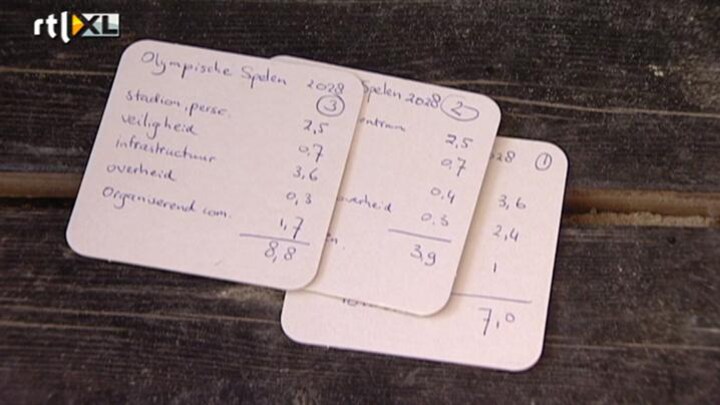 rtl XL
Olympische Spelen 2028
3
stadion, persc. 2,5
veiligheid 0,7
infrastructuur 3,6
overheid 0,3
Organiserend com. 1,7
8,8
Spelen 2028 2
entrum 2,5
0,7
0.4
overheid 0.3
en.
3,9
028 1
3,6
2,4
1
7,0